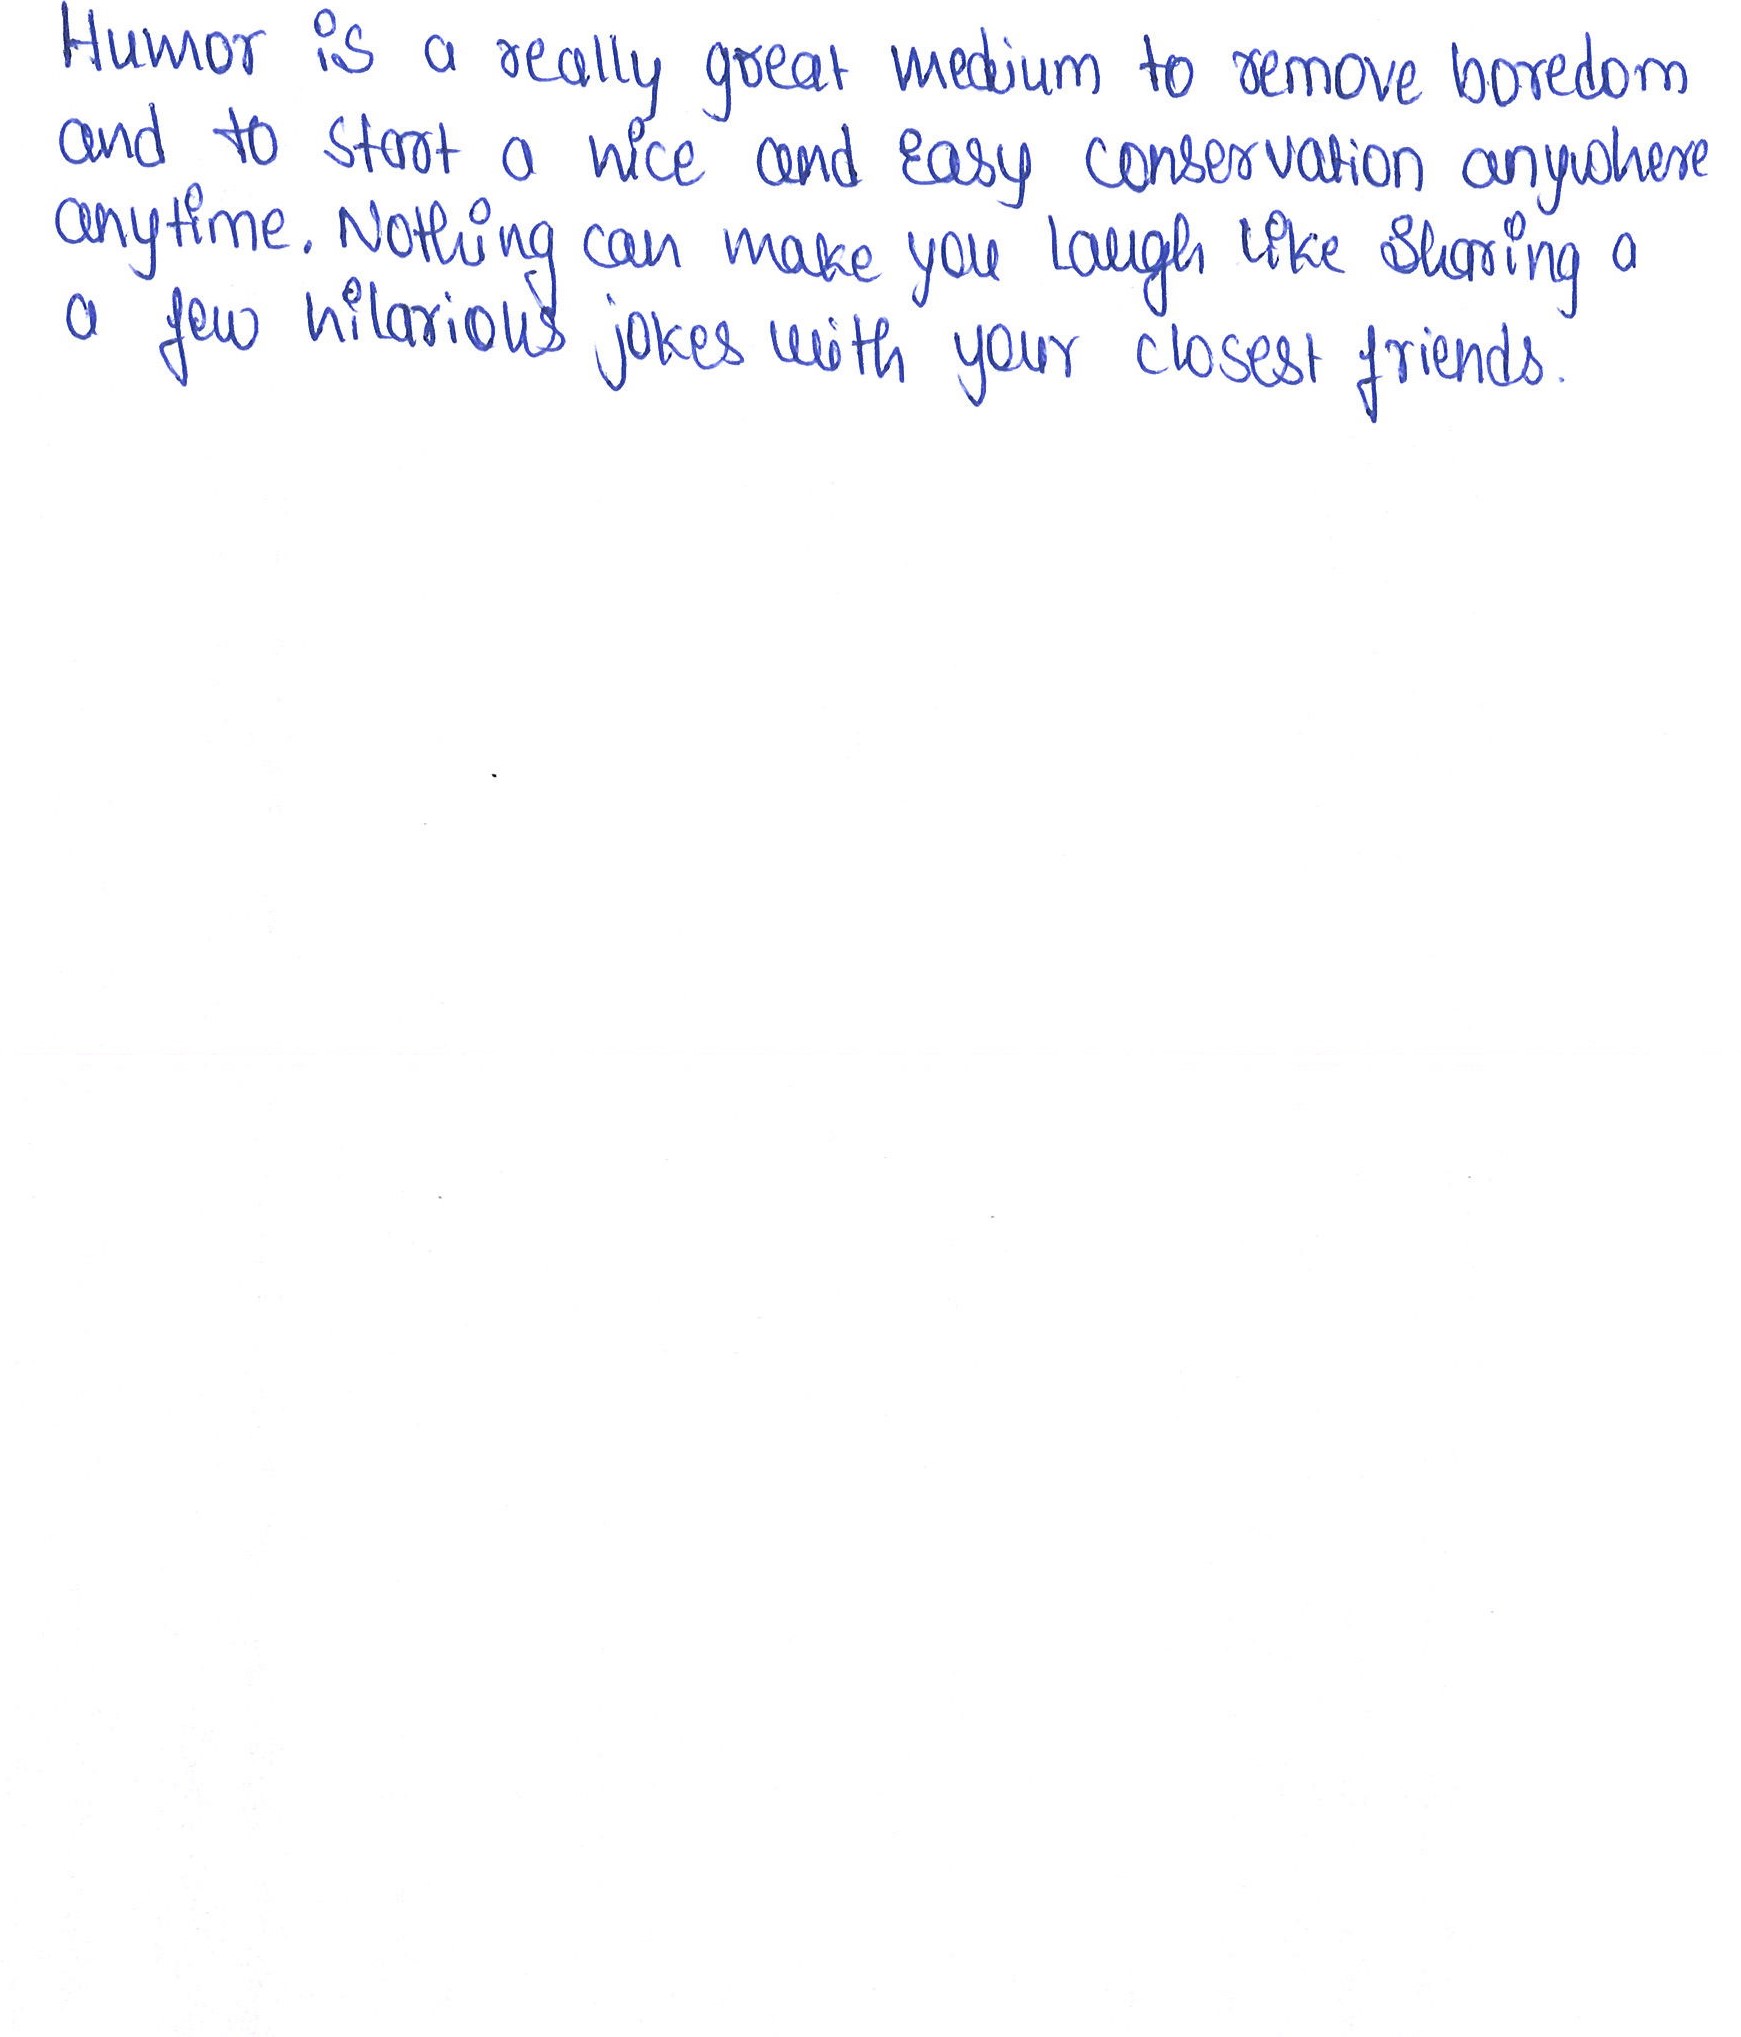 Humor is a really great medium to remove boredom
and to start a nice and easy conservation anywhere
anytime. Nothing can make you laugh like sharing a
a few hilarious jokes with your closest friends.